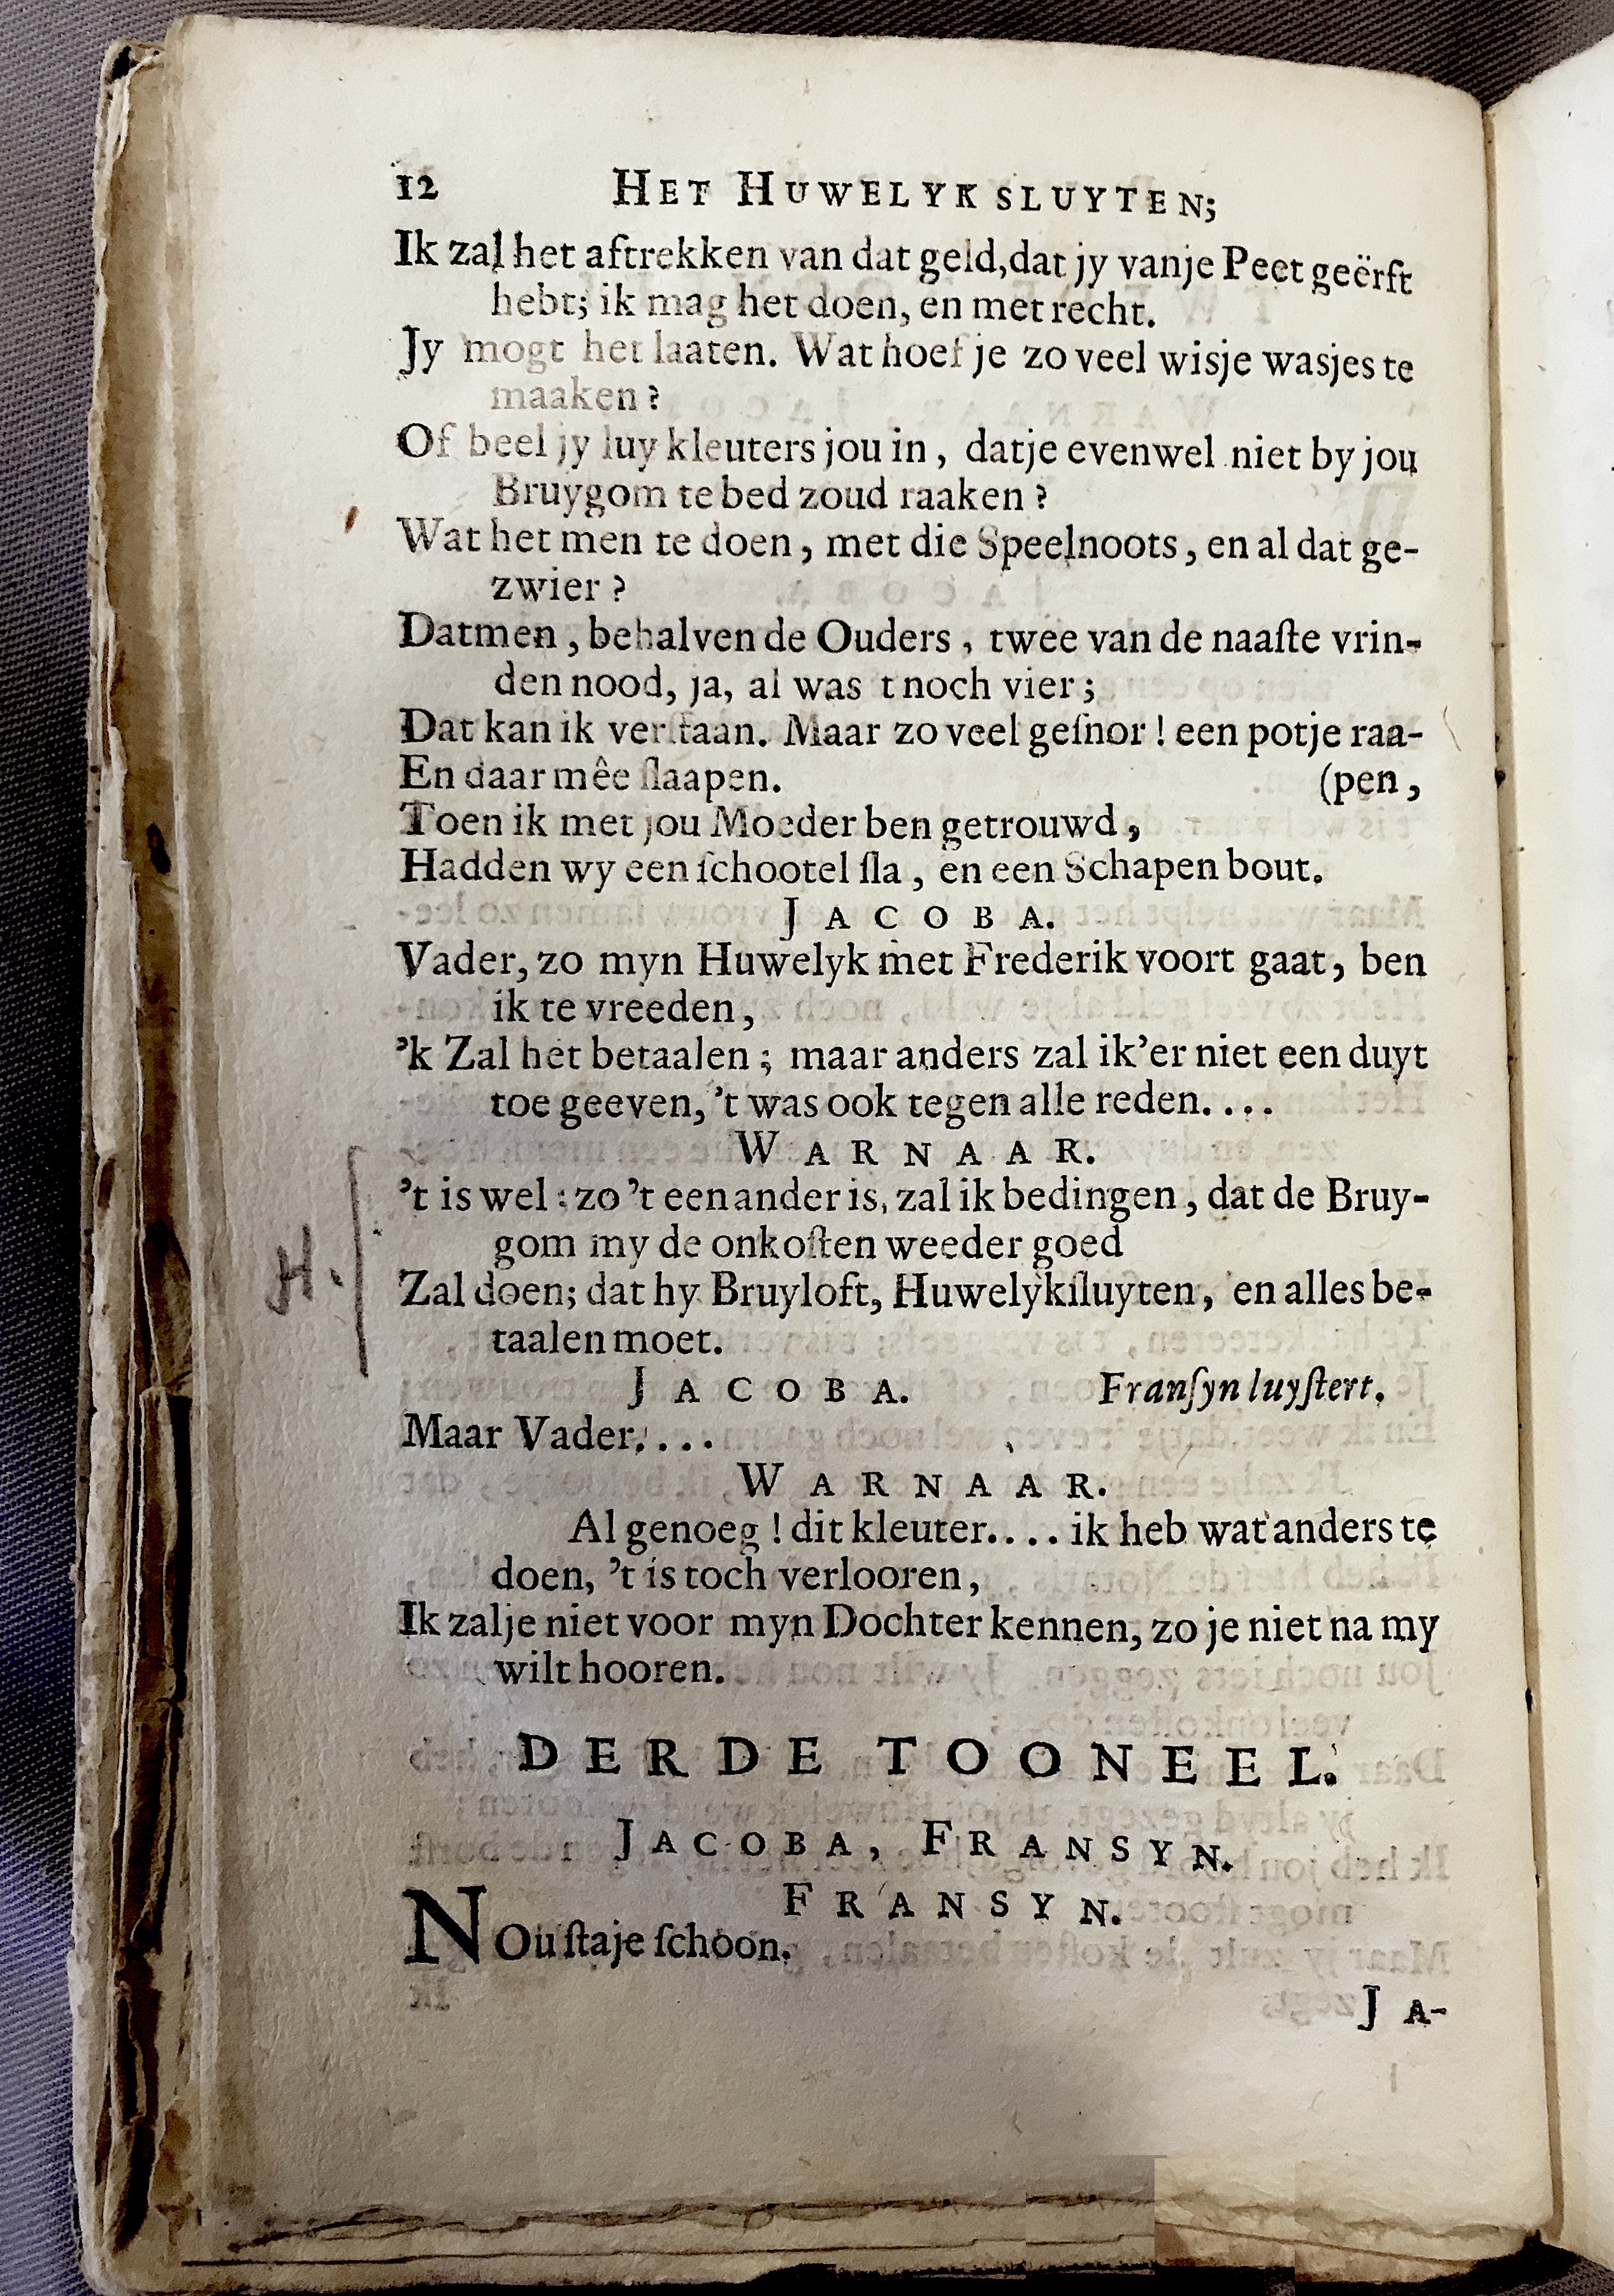 12 HET HUWELYK SLUYTEN;
Ik zal het aftrekken van dat geld, dat jy vanje Peet geërft
hebt; ik mag het doen, en met recht.
Jy mogt het laaten. Wat hoef je zo veel wisje wasjes te
maaken?
Of beel jy luy kleuters jou in, datje evenwel niet by jou
Bruygom te bed zoud raaken?
Wat het men te doen, met die Speelnoots, en al dat ge-
zwier?
Datmen, behalven de Ouders, twee van de naaſte vrin-
den nood, ja, al was t noch vier;
Dat kan ik verſtaan. Maar zo veel geſnor! een potje raa-
En daar mêe ſlaapen. (pen,
Toen ik met jou Moeder ben getrouwd,
Hadden wy een ſchootel ſla, en een Schapen bout.
JACOBA.
Vader, zo myn Huwelyk met Frederik voort gaat, ben
ik te vreeden,
'k Zal het betaalen; maar anders zal ik'er niet een duyt
toe geeven, 't was ook tegen alle reden....
WARNAAR.
't is wel: zo 't een ander is, zal ik bedingen, dat de Bruy-
gom my de onkoſten weeder goed
H.
Zal doen; dat hy Bruyloft, Huwelykſluyten, en alles be-
taalen moet.
JACOBA. Franſyn luyſtert.
Maar Vader....
WARNAAR.
Al genoeg! dit kleuter.... ik heb wat anders te
doen, 't is toch verlooren,
Ik zalje niet voor myn Dochter kennen, zo je niet na my
wilt hooren.
DERDE TOONEEL.
JACOBA, FRANSYN.
FRANSYN.
NOu ſtaje ſchoon.
JA-